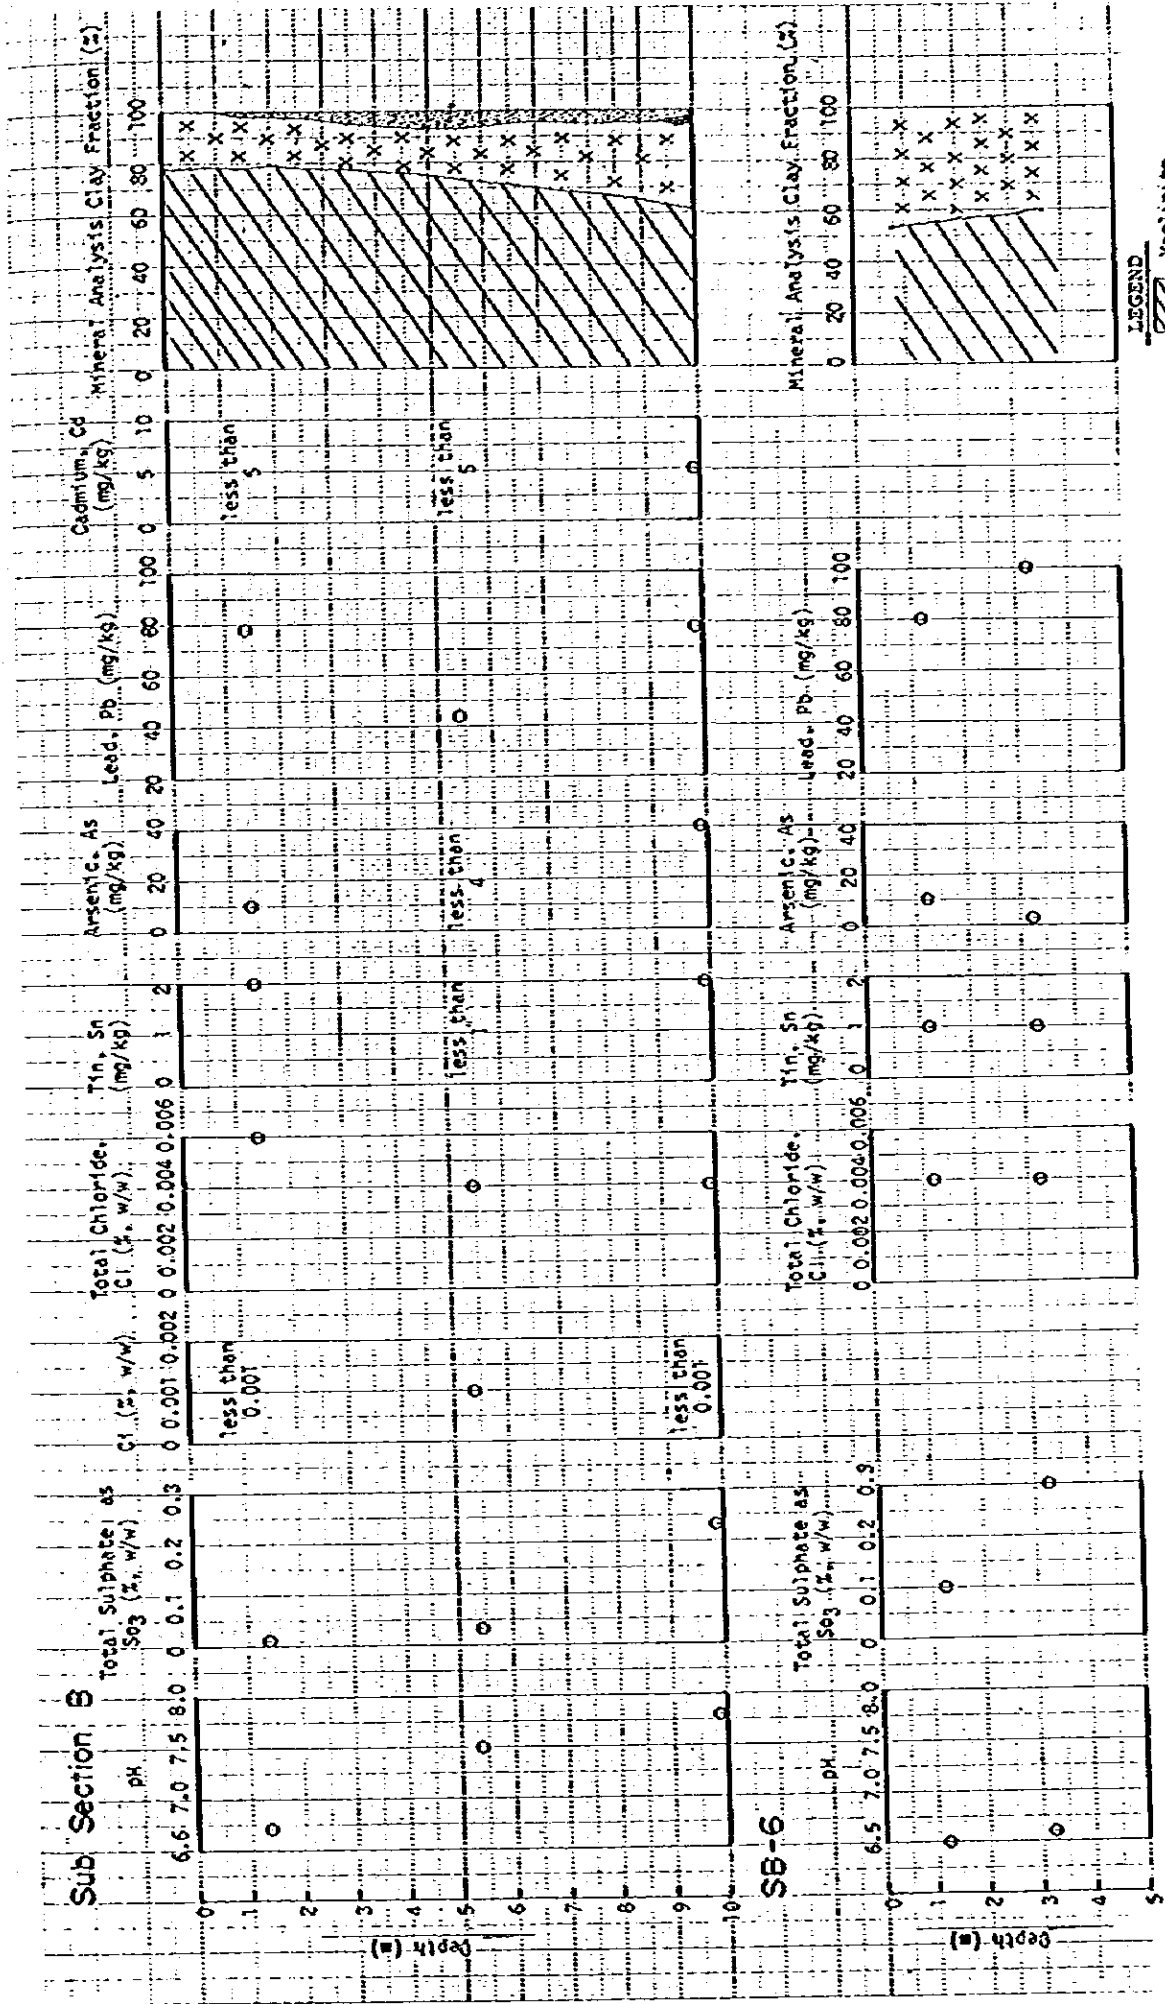 Sub Section B
pH
6.6 7.0 7.5 8.0
Total Sulphate as
So3 (%, w/w)
0 0.1 0.2 0.3
Cl (%, w/w)
0 0.001 0.002
less than
0.001
less than
0.001
Total Chloride,
Cl (%, w/w)
0 0.002 0.004 0.006
Tin, Sn
(mg/kg)
0 1 2
less than
1
Arsenic, As
(mg/kg)
0 20 40
less than
4
Lead, Pb (mg/kg)
20 40 60 80 100
Cadmium, Cd
(mg/kg)
0 5 10
less than
5
less than
5
Mineral Analysis Clay Fraction (%)
0 20 40 60 80 100
Depth (m)
0
1
2
3
4
5
6
7
8
9
10
SB-6
pH
6.5 7.0 7.5 8.0
Total Sulphate as
So3 (%, w/w)
0 0.1 0.2 0.3
Total Chloride,
Cl (%, w/w)
0 0.002 0.004 0.006
Tin, Sn
(mg/kg)
0 1 2
Arsenic, As
(mg/kg)
0 20 40
Lead, Pb (mg/kg)
20 40 60 80 100
Mineral Analysis Clay Fraction (%)
0 20 40 60 80 100
Depth (m)
0
1
2
3
4
5
LEGEND